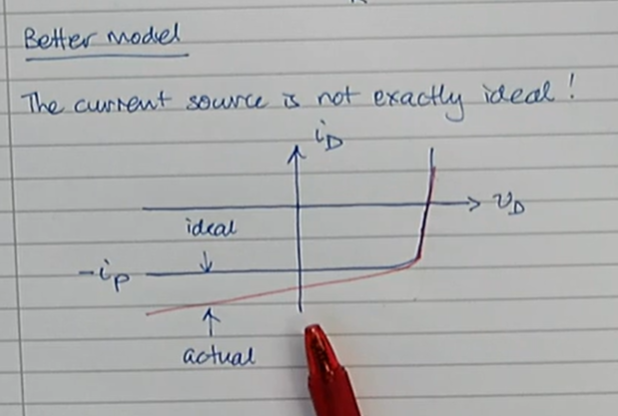 Better model
The current source is not exactly ideal!
i_D
v_D
ideal
-i_P
actual